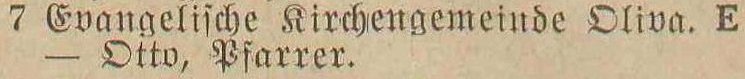 7 Evangeliſche Kirchengemeinde Oliva. E
— Otto, Pfarrer.